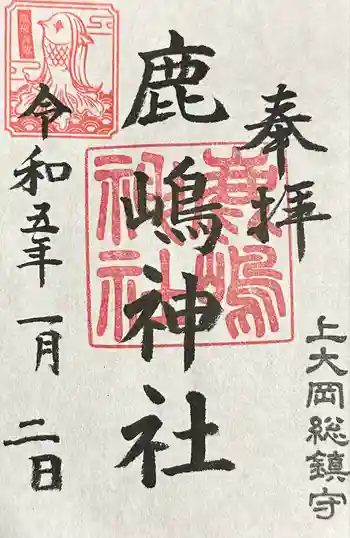 奉拝
上大岡総鎮守
鹿嶋神社
令和五年一月二日